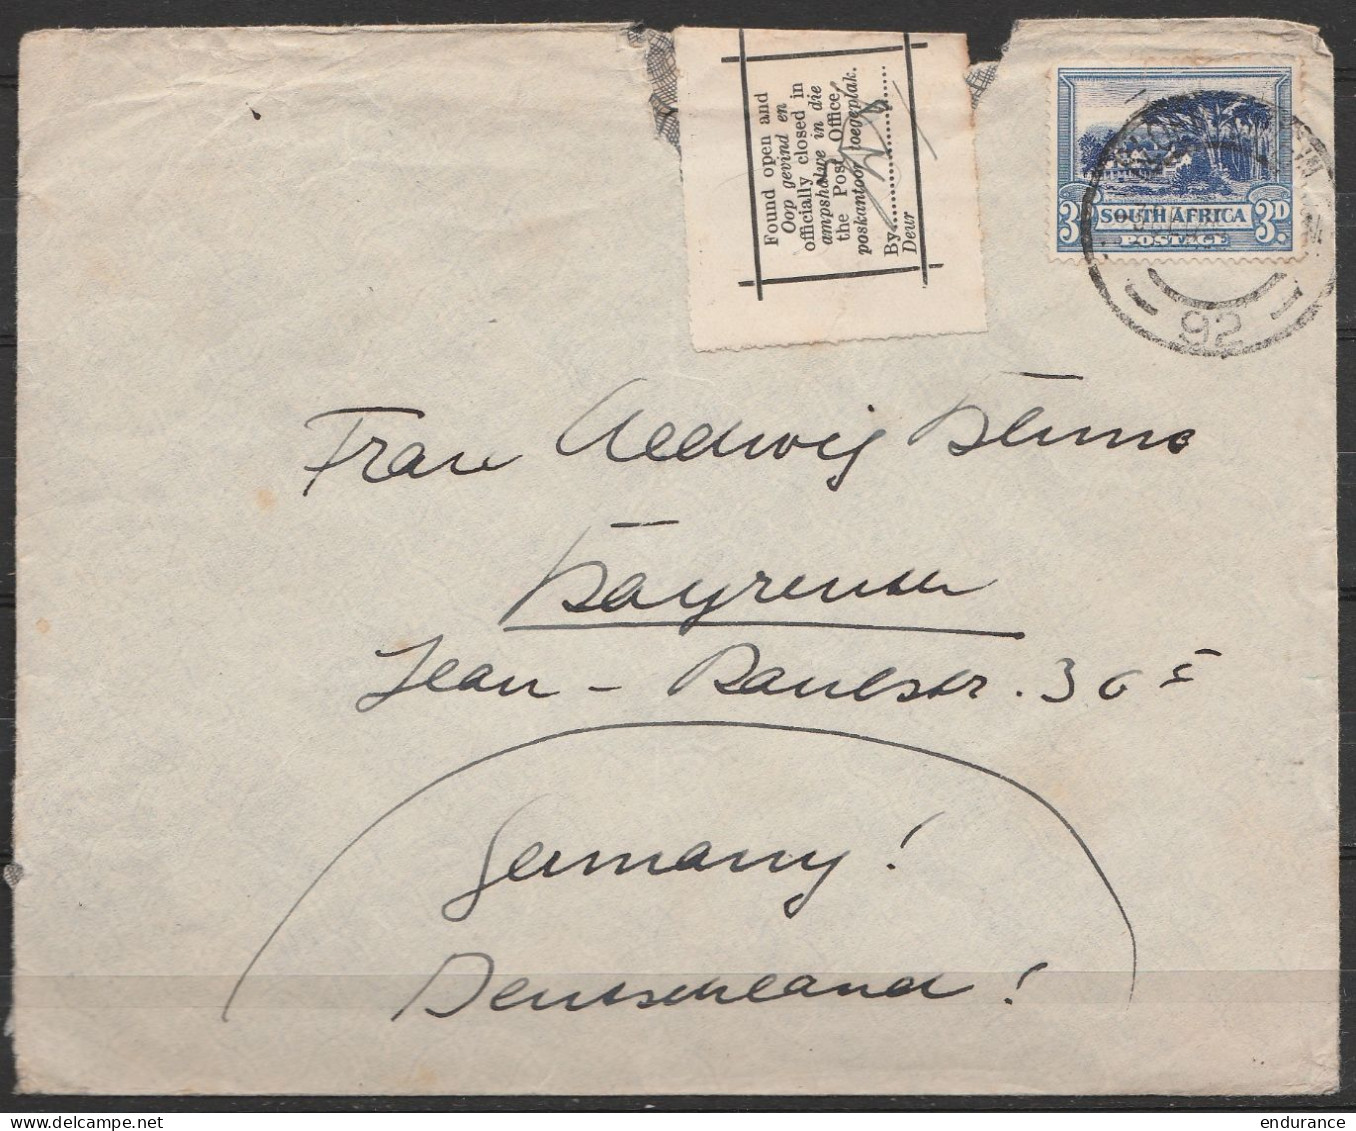 Found open and
Oop gevind en
officially closed in
ampshalwe in die
the Post Office,
poskantoor toegeplak.
By
Deur
3D
SOUTH AFRICA
3D.
POSTAGE
92
Frau Hedwig
Bayreuth
Jean - Paulstr. 30 I
Germany!
Deutschland!
endurance